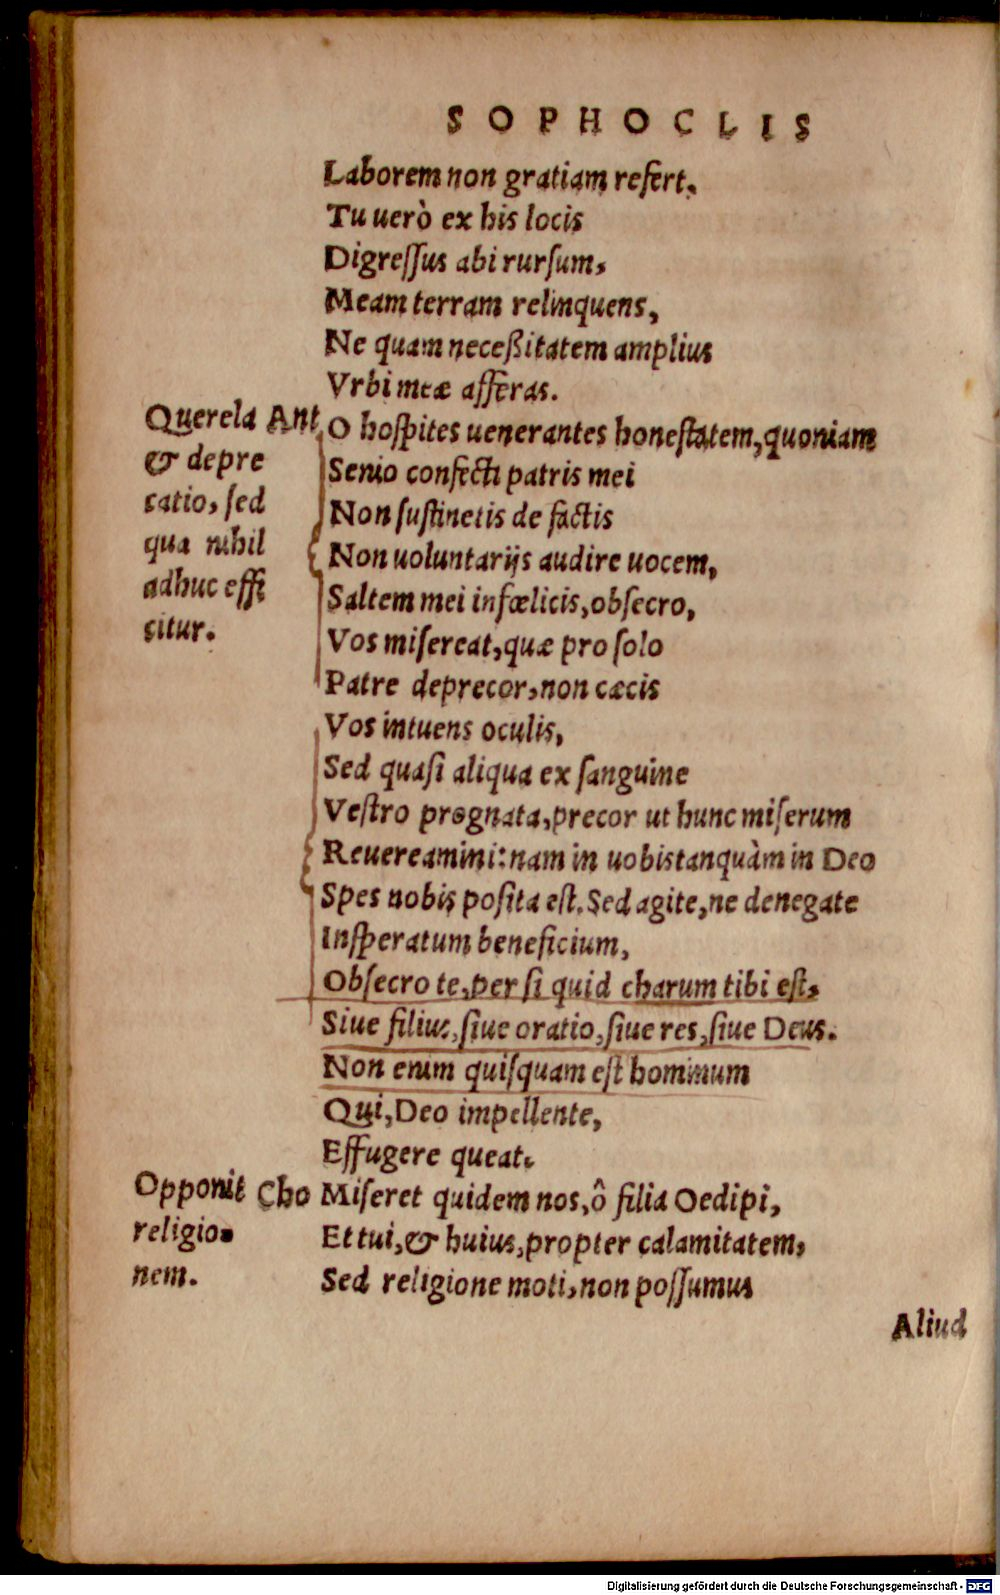 SOPHOCLIS
Laborem non gratiam refert.
Tu uerò ex his locis
Digreſſus abi rurſum,
Meam terram relinquens,
Ne quam neceßitatem amplius
Vrbi meæ afferas.
Querela
& depre
catio, ſed
qua nihil
adhuc effi
citur.
Ant O hoſpites uenerantes honeſtatem, quoniam
Senio confecti patris mei
Non ſuſtinetis de factis
Non uoluntarijs audire uocem,
Saltem mei infœlicis, obſecro,
Vos miſereat, quæ pro ſolo
Patre deprecor, non cæcis
Vos intuens oculis,
Sed quaſi aliqua ex ſanguine
Veſtro prognata, precor ut hunc miſerum
Reuereamini: nam in uobis tanquàm in Deo
Spes nobis poſita eſt. Sed agite, ne denegate
Inſperatum beneficium,
Obſecro te, per ſi quid charum tibi eſt,
Siue filius, ſiue oratio, ſiue res, ſiue Deus.
Non enim quiſquam eſt hominum
Qui, Deo impellente,
Effugere queat.
Opponit
religio-
nem.
Cho Miſeret quidem nos, ô filia Oedipi,
Et tui, & huius, propter calamitatem,
Sed religione moti, non poſſumus
Aliud
Digitalisierung gefördert durch die Deutsche Forschungsgemeinschaft - DFG